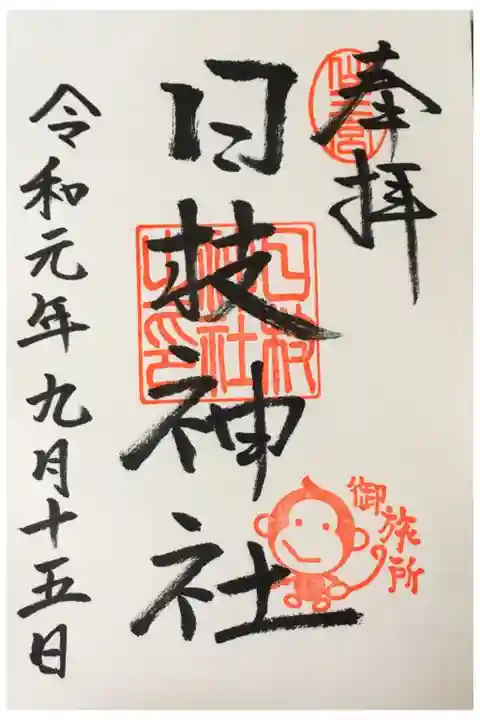 奉拝
日枝神社
日枝神社之印
御旅所
令和元年九月十五日